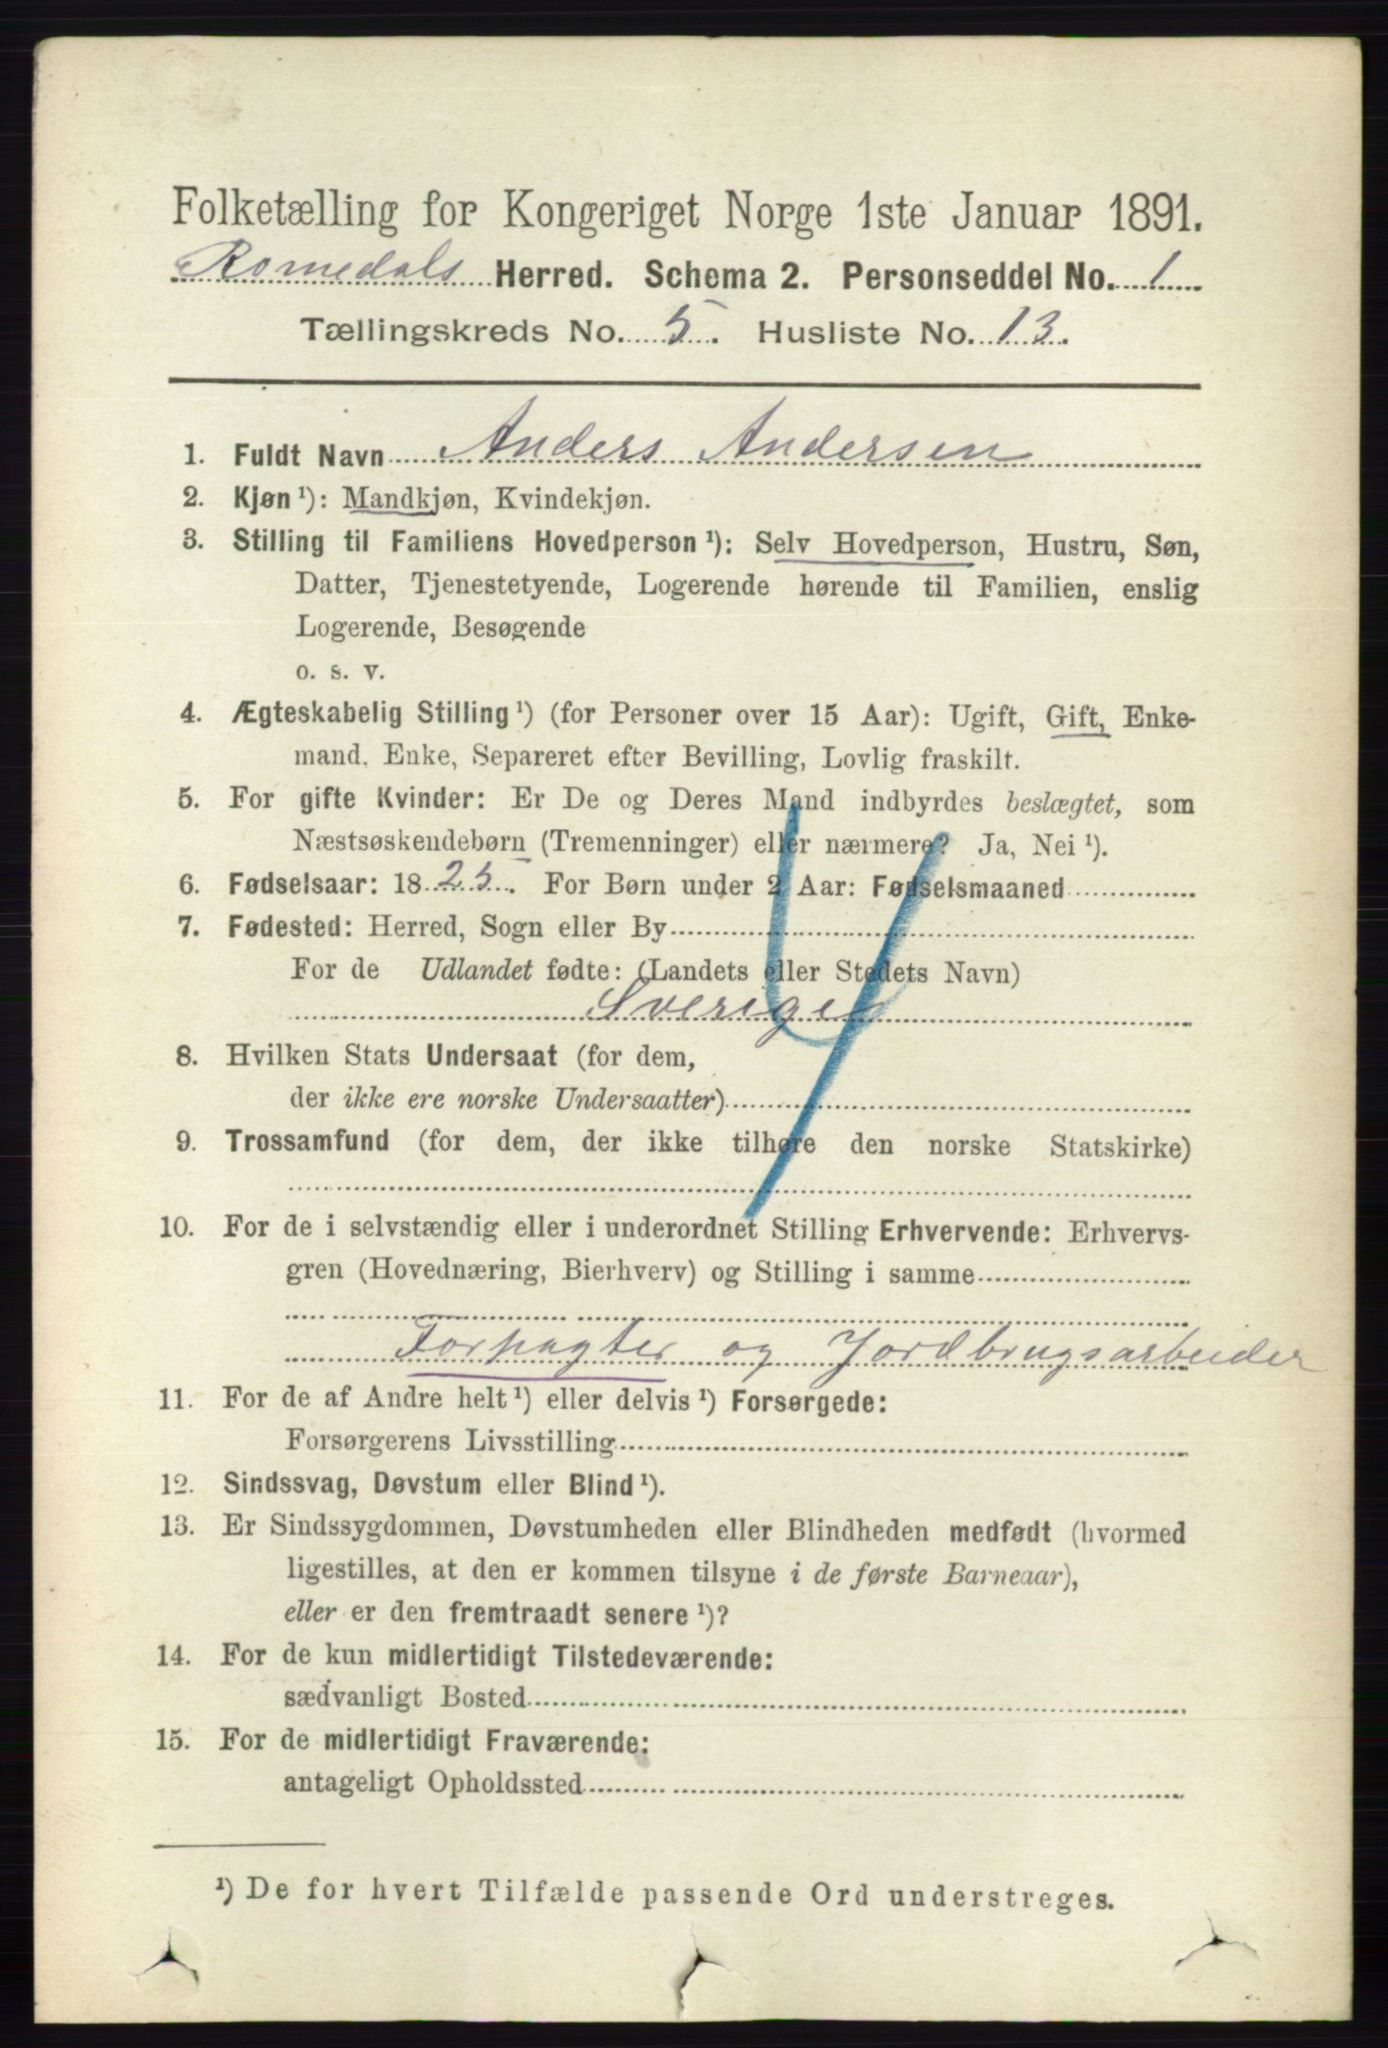 Folketælling for Kongeriget Norge 1ste Januar 1891.
Romedals Herred. Schema 2. Personseddel No. 1
Tællingskreds No. 5. Husliste No. 13.
1. Fuldt Navn Anders Andersen
2. Kjøn ¹): Mandkjøn, Kvindekjøn.
3. Stilling til Familiens Hovedperson ¹): Selv Hovedperson, Hustru, Søn,
Datter, Tjenestetyende, Logerende hørende til Familien, enslig
Logerende, Besøgende
o. s. v.
4. Ægteskabelig Stilling ¹) (for Personer over 15 Aar): Ugift, Gift, Enke-
mand, Enke, Separeret efter Bevilling, Lovlig fraskilt.
5. For gifte Kvinder: Er De og Deres Mand indbyrdes beslægtet, som
Næstsøskendebørn (Tremenninger) eller nærmere? Ja, Nei ¹).
6. Fødselsaar: 1825. For Børn under 2 Aar: Fødselsmaaned
7. Fødested: Herred, Sogn eller By
For de Udlandet fødte: (Landets eller Stedets Navn)
Sverige
8. Hvilken Stats Undersaat (for dem,
der ikke ere norske Undersaatter)
9. Trossamfund (for dem, der ikke tilhøre den norske Statskirke)
10. For de i selvstændig eller i underordnet Stilling Erhvervende: Erhvervs-
gren (Hovednæring, Bierhverv) og Stilling i samme
Forpagter og Jordbrugsarbeider
11. For de af Andre helt ¹) eller delvis ¹) Forsørgede:
Forsørgerens Livsstilling
12. Sindssvag, Døvstum eller Blind ¹).
13. Er Sindssygdommen, Døvstumheden eller Blindheden medfødt (hvormed
ligestilles, at den er kommen tilsyne i de første Barneaar),
eller er den fremtraadt senere ¹)?
14. For de kun midlertidigt Tilstedeværende:
sædvanligt Bosted
15. For de midlertidigt Fraværende:
antageligt Opholdssted
¹) De for hvert Tilfælde passende Ord understreges.